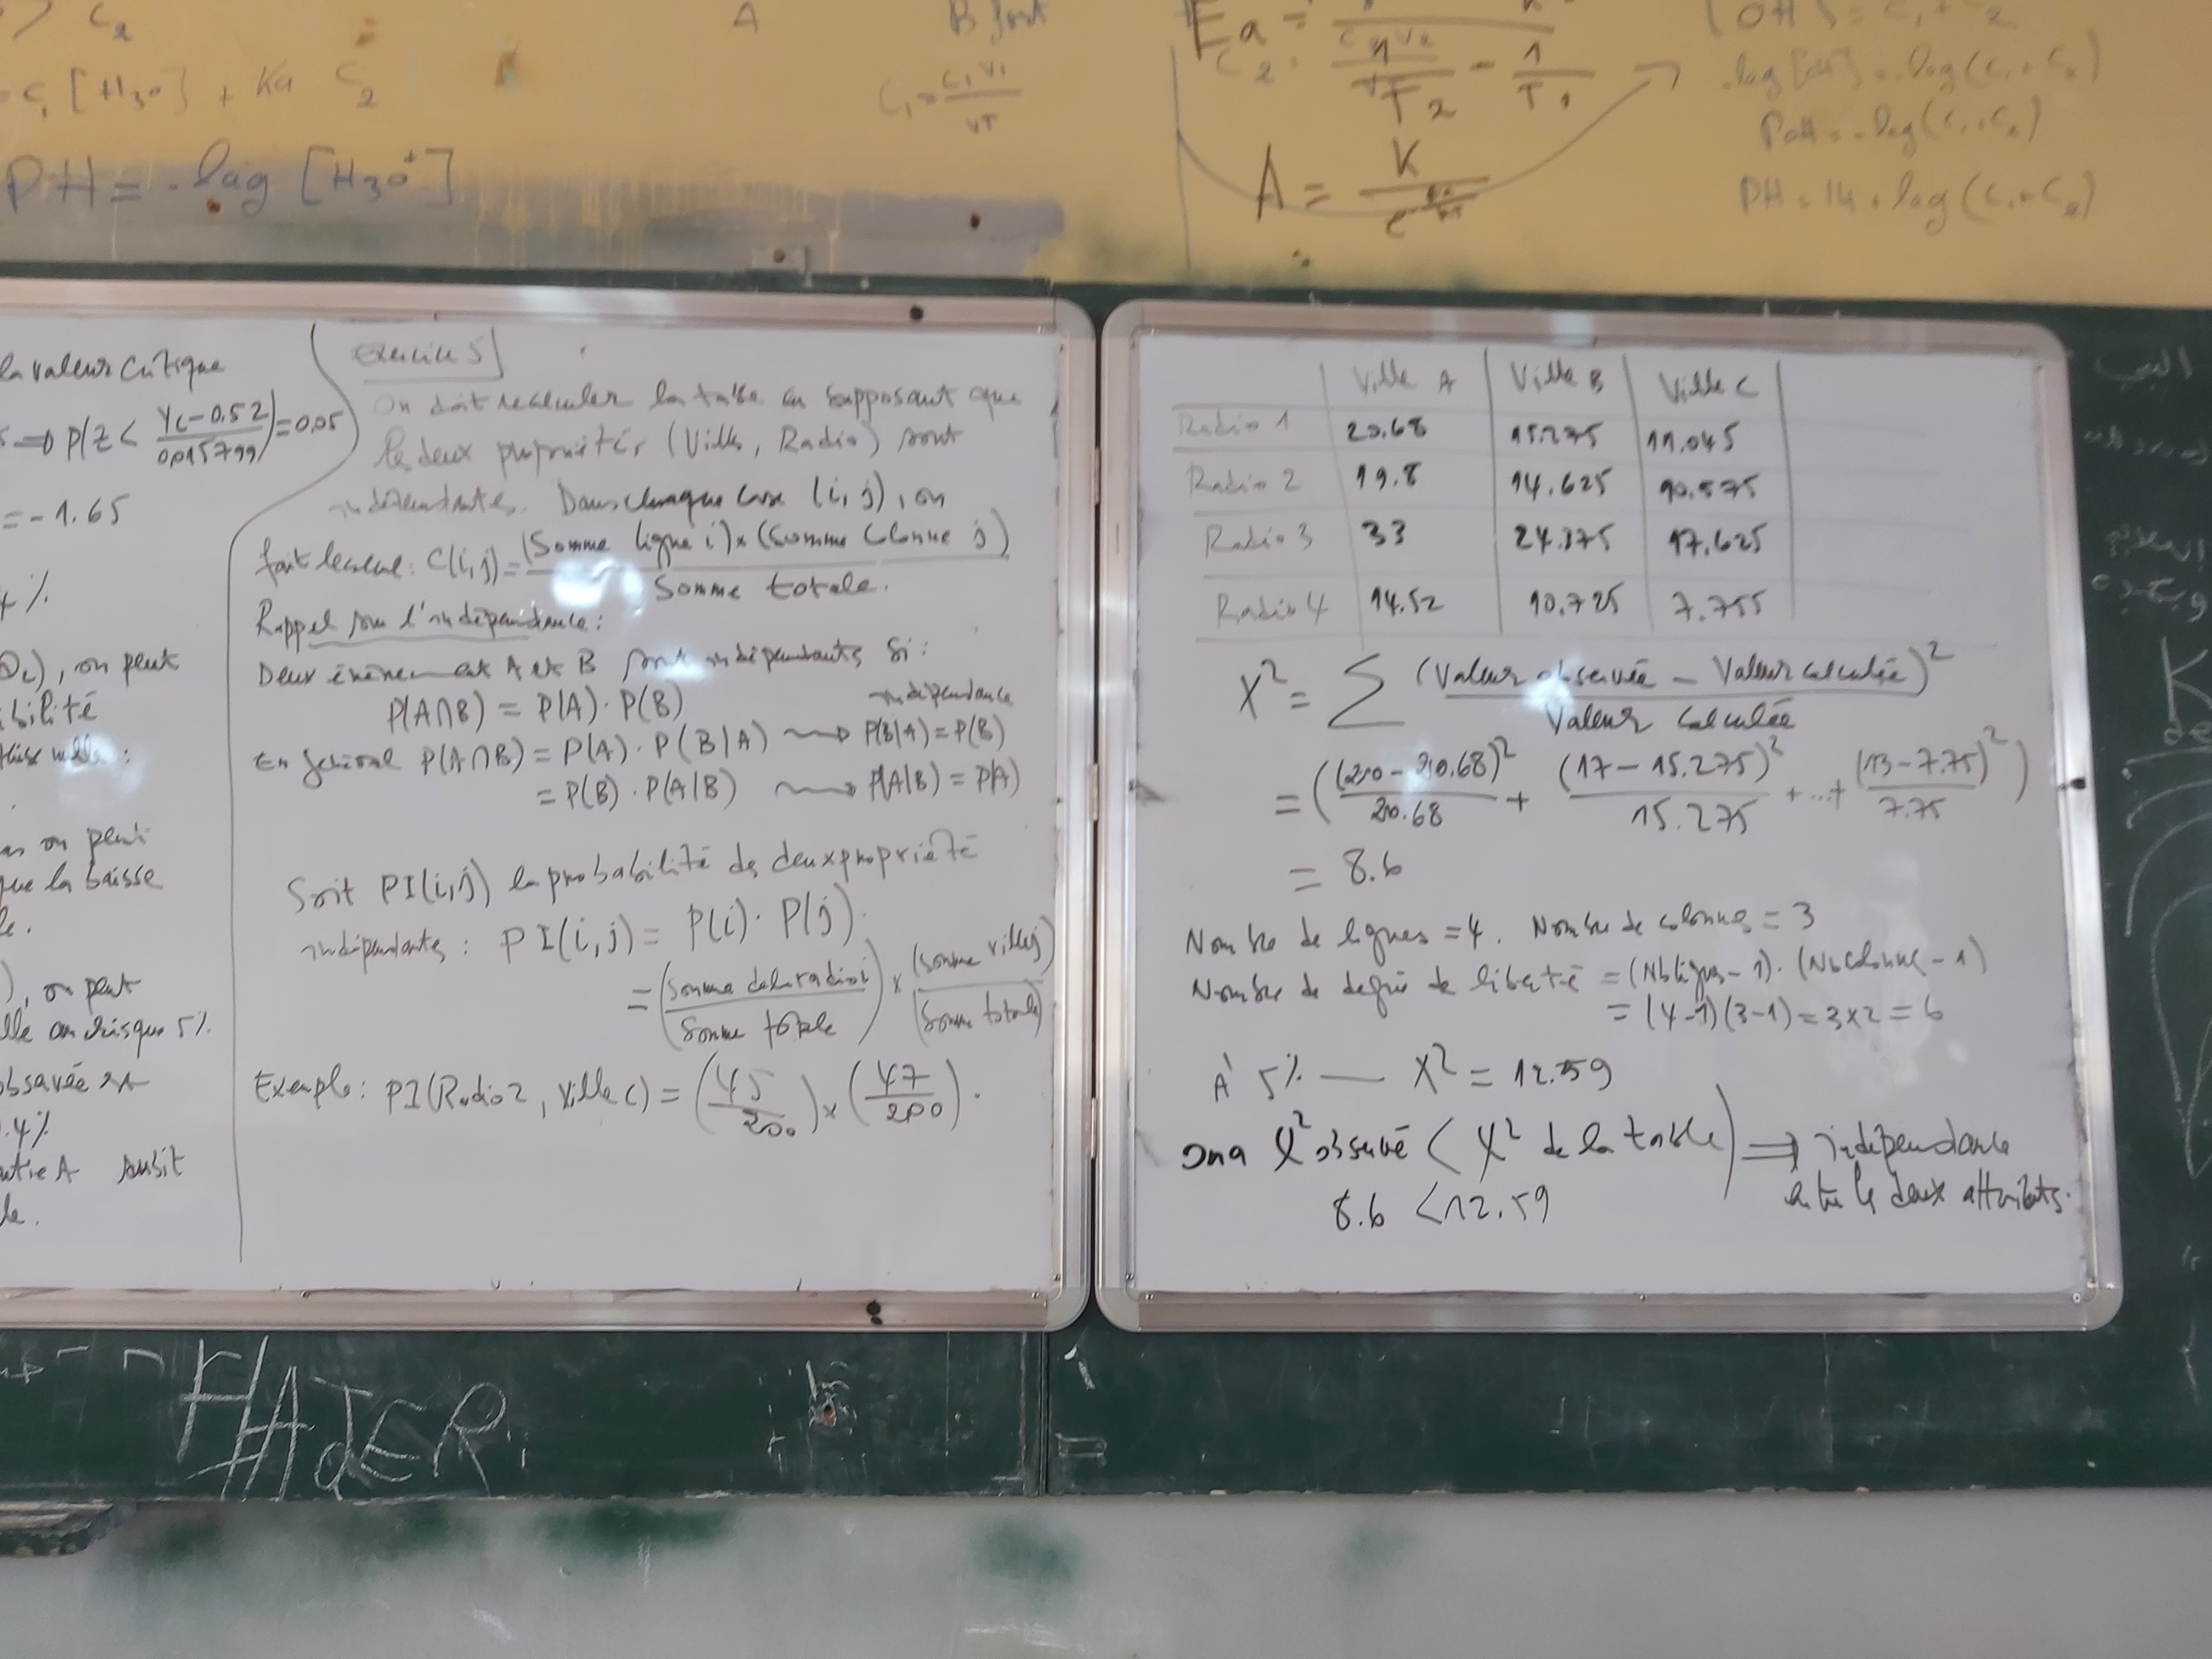 C₂
A
B fort
[H₃O⁺] + Ka C₂
C₁ = C₁V₁/VT
PH = -log [H₃O⁺]
Ea =
1/T₂ - 1/T₁
A = K/e
-log[OH] = -log(C₁+C₂)
POH = -log(C₁+C₂)
PH = 14 + log(C₁+C₂)
la valeur critique
⇒ P(Z < (Yc - 0.52)/0,015799) = 0,05
= -1.65
4%
), on peut
on peut
que la baisse
), on peut
au risque 5%
observée est
.4%
A subit
Exercice 5
On doit recalculer la table en supposant que
les deux propriétés (Ville, Radio) sont
indépendantes. Dans chaque case (i, j), on
fait le calcul : C(i,j) = (Somme ligne i) x (Somme Colonne j) / Somme totale.
Rappel sur l'indépendance :
Deux évènement A et B sont indépendants si :
P(A∩B) = P(A) . P(B)
indépendance
En général P(A∩B) = P(A) . P(B|A) ⟿ P(B|A) = P(B)
= P(B) . P(A|B) ⟿ P(A|B) = P(A)
Soit PI(i,j) la probabilité de deux propriété
indépendantes : PI(i,j) = P(i) . P(j).
= (Somme de la radio i / Somme totale) x (Somme ville j) / (Somme totale)
Exemple : PI(Radio 2, Ville C) = (45/200) x (47/200).
Ville A Ville B Ville C
Radio 1 20.68 15.275 11.045
Radio 2 19.8 14.625 10.575
Radio 3 33 24.375 17.625
Radio 4 14.52 10.725 7.755
X² = Σ (Valeur observée - Valeur calculée)² / Valeur calculée
= ((20 - 20.68)²/20.68 + (17 - 15.275)²/15.275 + ... + (13 - 7.75)²/7.75)
= 8.6
Nombre de lignes = 4. Nombre de colonnes = 3
Nombre de degré de liberté = (Nb lignes - 1) . (Nb colonne - 1)
= (4-1)(3-1) = 3x2 = 6
À 5% — X² = 12.59
On a X² observé < X² de la table ⇒ indépendance
8.6 < 12.59 entre les deux attributs.
HAJER